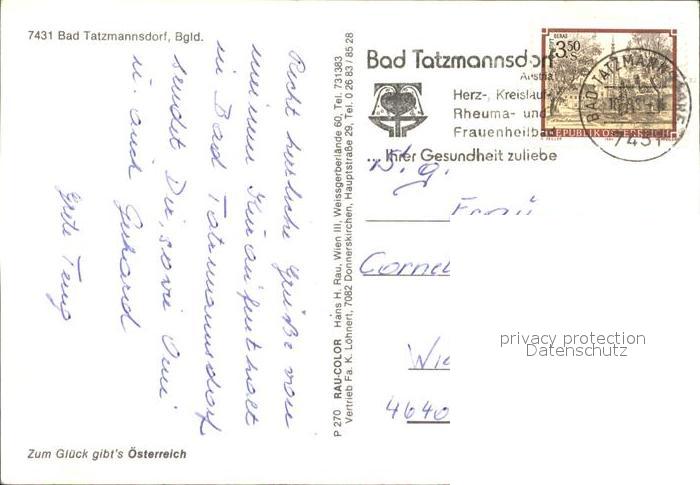 7431 Bad Tatzmannsdorf, Bgld.
Recht herzliche Grüße von
meinem Kuraufenthalt
in Bad Tatzmannsdorf
sendet Dir, sowie Omi
u. auch Gerhard
Grete
Zum Glück gibt's Österreich
P 270 RAU-COLOR Hans H. Rau, Wien III, Weissgerberlände 60, Tel. 731383
Vertrieb Fa. K. Löhnert, 7082 Donnerskirchen, Hauptstraße 29, Tel. 0 26 83 / 85 28
Bad Tatzmannsdorf
Austria
Herz-, Kreislauf-
Rheuma- und
Frauenheilbad
... Ihrer Gesundheit zuliebe
3.50
S
REPUBLIK ÖSTERREICH
BAD TATZMANN
7431
Frau
Cornel
Wie
4640
privacy protection
Datenschutz